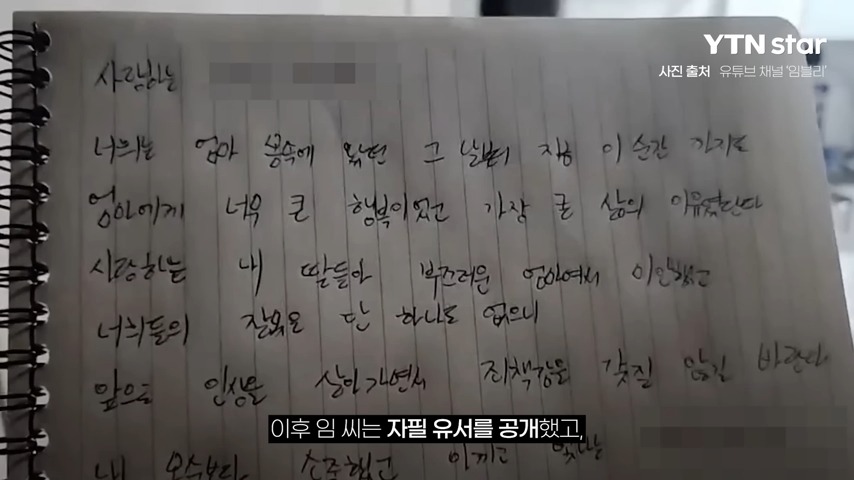 YTN star
사진 출처 유튜브 채널 '임블리'
사랑하는
너희는 엄마 몸속에 왔던 그 날부터 지금 이 순간 까지도
엄마에게 너무 큰 행복이었고 가장 큰 삶의 이유였단다
사랑하는 내 딸들아 부끄러운 엄마여서 미안했고
너희들의 잘못은 단 하나도 없으니
앞으로 인생을 살아가면서 죄책감을 갖질 않길 바란다
이후 임 씨는 자필 유서를 공개했고,
내 목숨보다 소중했고 아끼고